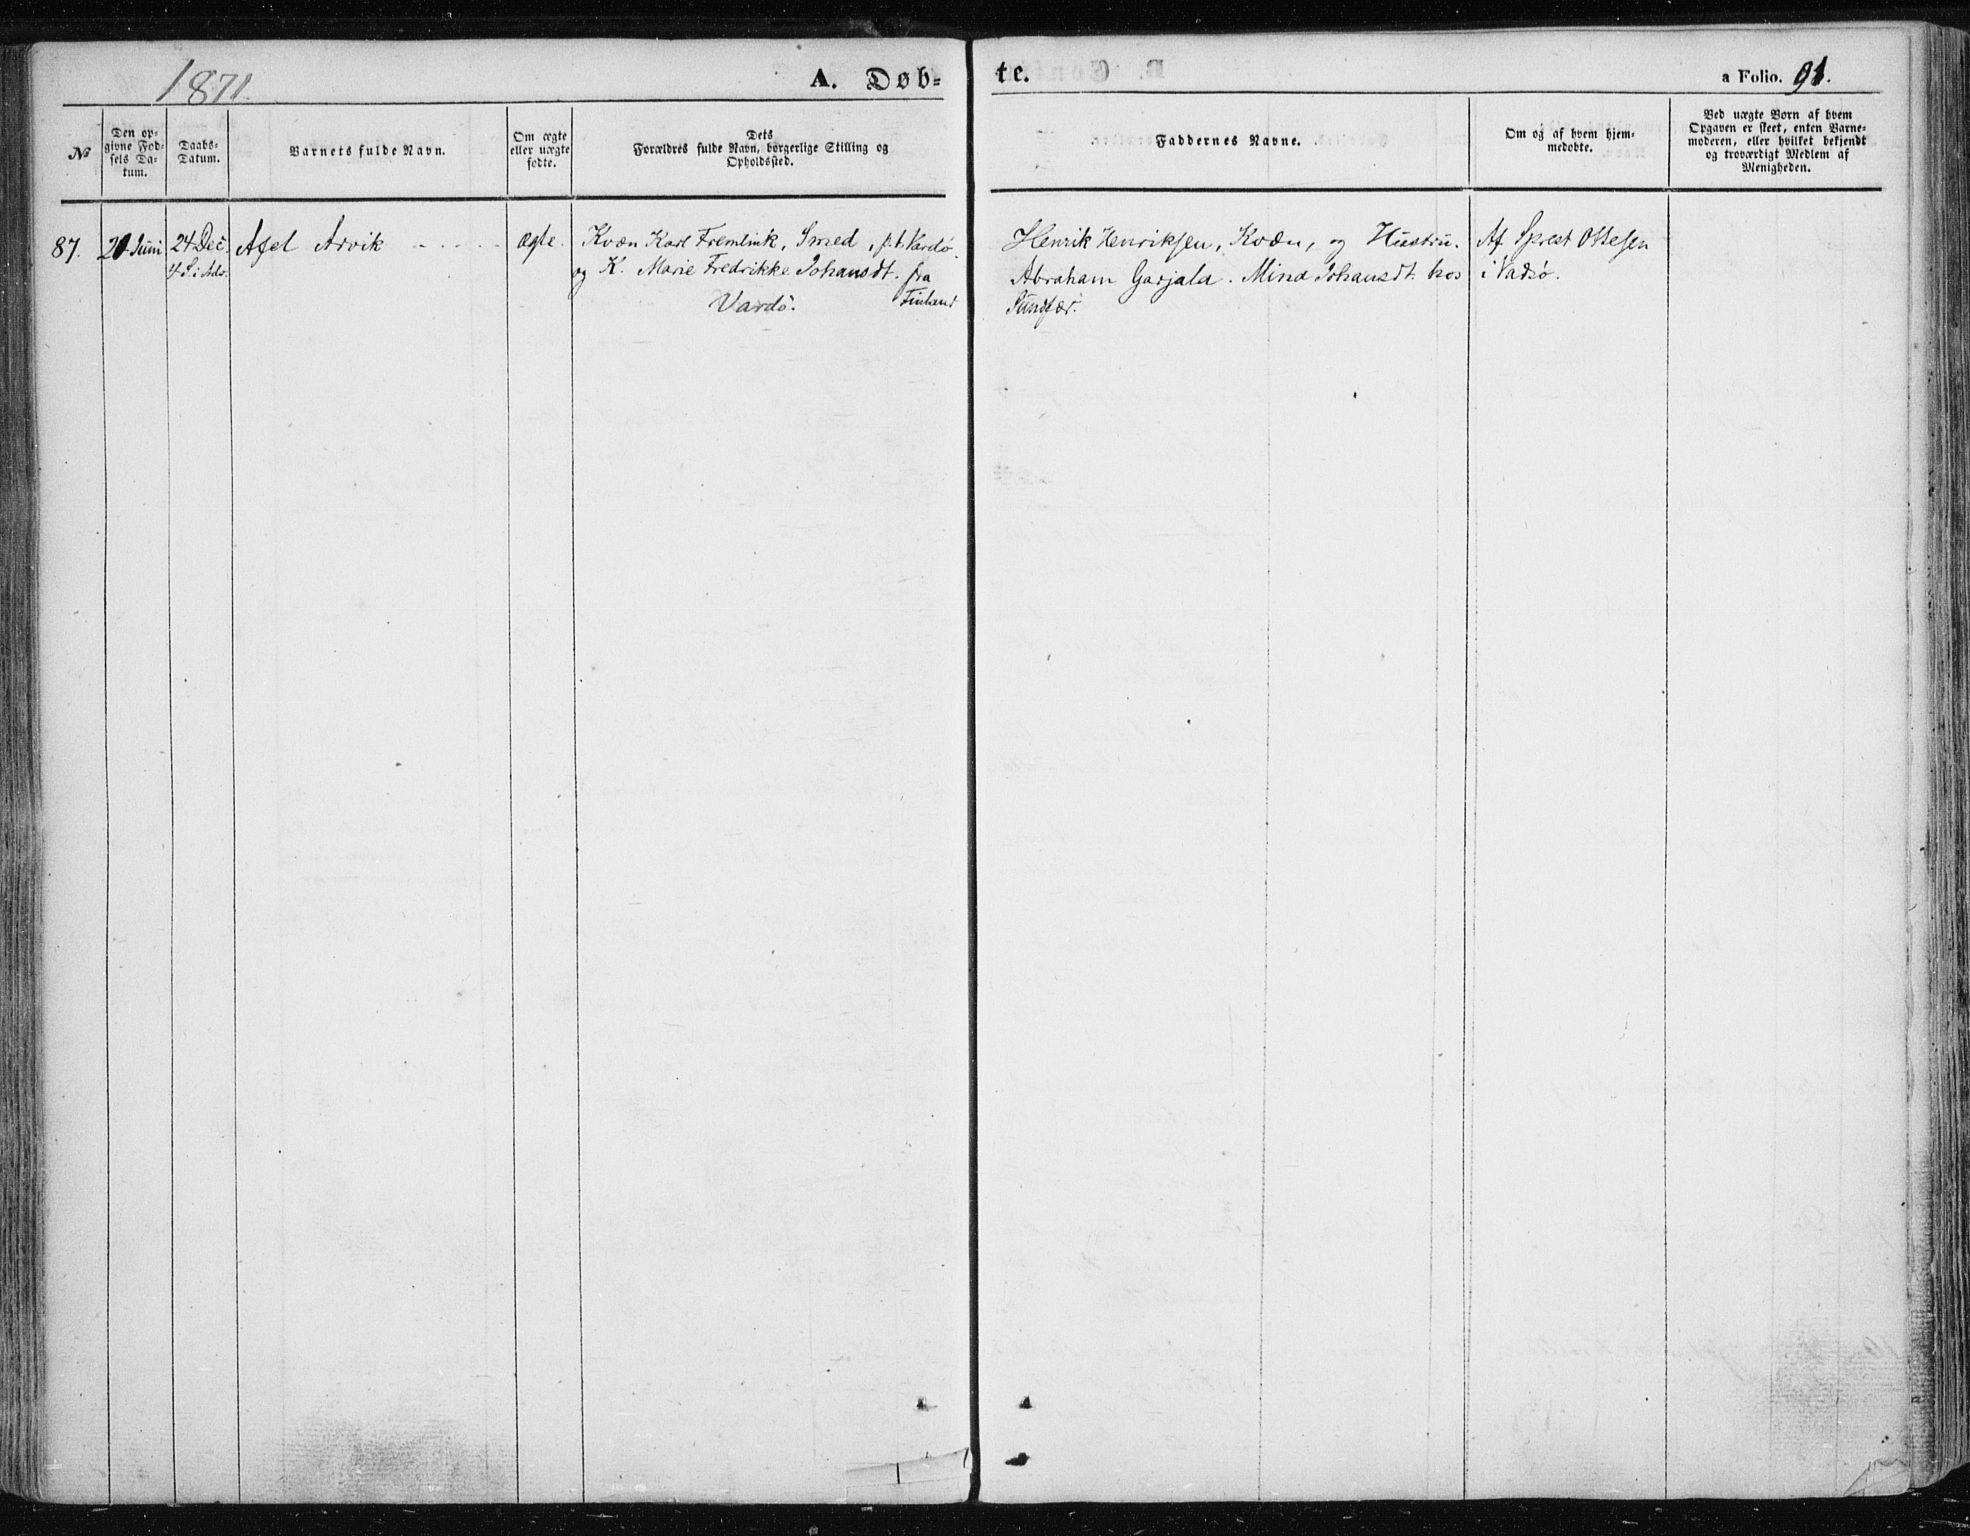 1871.
A. Døb-
te.
a Folio. 91.
No
Den op-
givne Fød-
sels Da-
tum.
Daabs-
Datum.
Barnets fulde Navn.
Om ægte
eller uægte
fødte.
Dets
Forældres fulde Navn, borgerlige Stilling og
Opholdssted.
Faddernes Navne.
Om og af hvem hjem-
medøbte.
Ved uægte Børn af hvem
Opgaven er skeet, enten Barne-
moderen, eller hvilket bekjendt
og troværdigt Medlem af
Menigheden.
87. 21 Juni 24 Dec. Axel Arvik ægte. Kvæn Karl Fremlink, Smed, p.t. Vardø
4 S. i Adv. og K. Marie Fredrikke Johansdt. fra
Vardø. Finland
Henrik Henriksen, Kvæn, og Hustru. Af Sprest Ottesen
Abraham Garjala. Mina Johansdt. hos i Vadsø.
Sundfær.